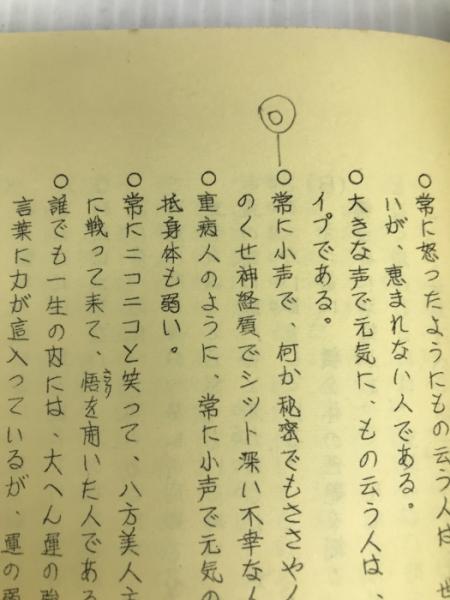 ○常に怒ったようにもの云う人は、世
いが、恵まれない人である。
○大きな声で元気に、もの云う人は、
イプである。
○常に小声で、何か秘密でもささやく
のくせ神経質でシット深い不幸な人
○重病人のように、常に小声で元気の
抵身体も弱い。
○常にニコニコと笑って、八方美人
に戦って来て、悟を開いた人である
さとり
○誰でも一生の内には、大へん運の強
言葉に力が這入っているが、運の弱